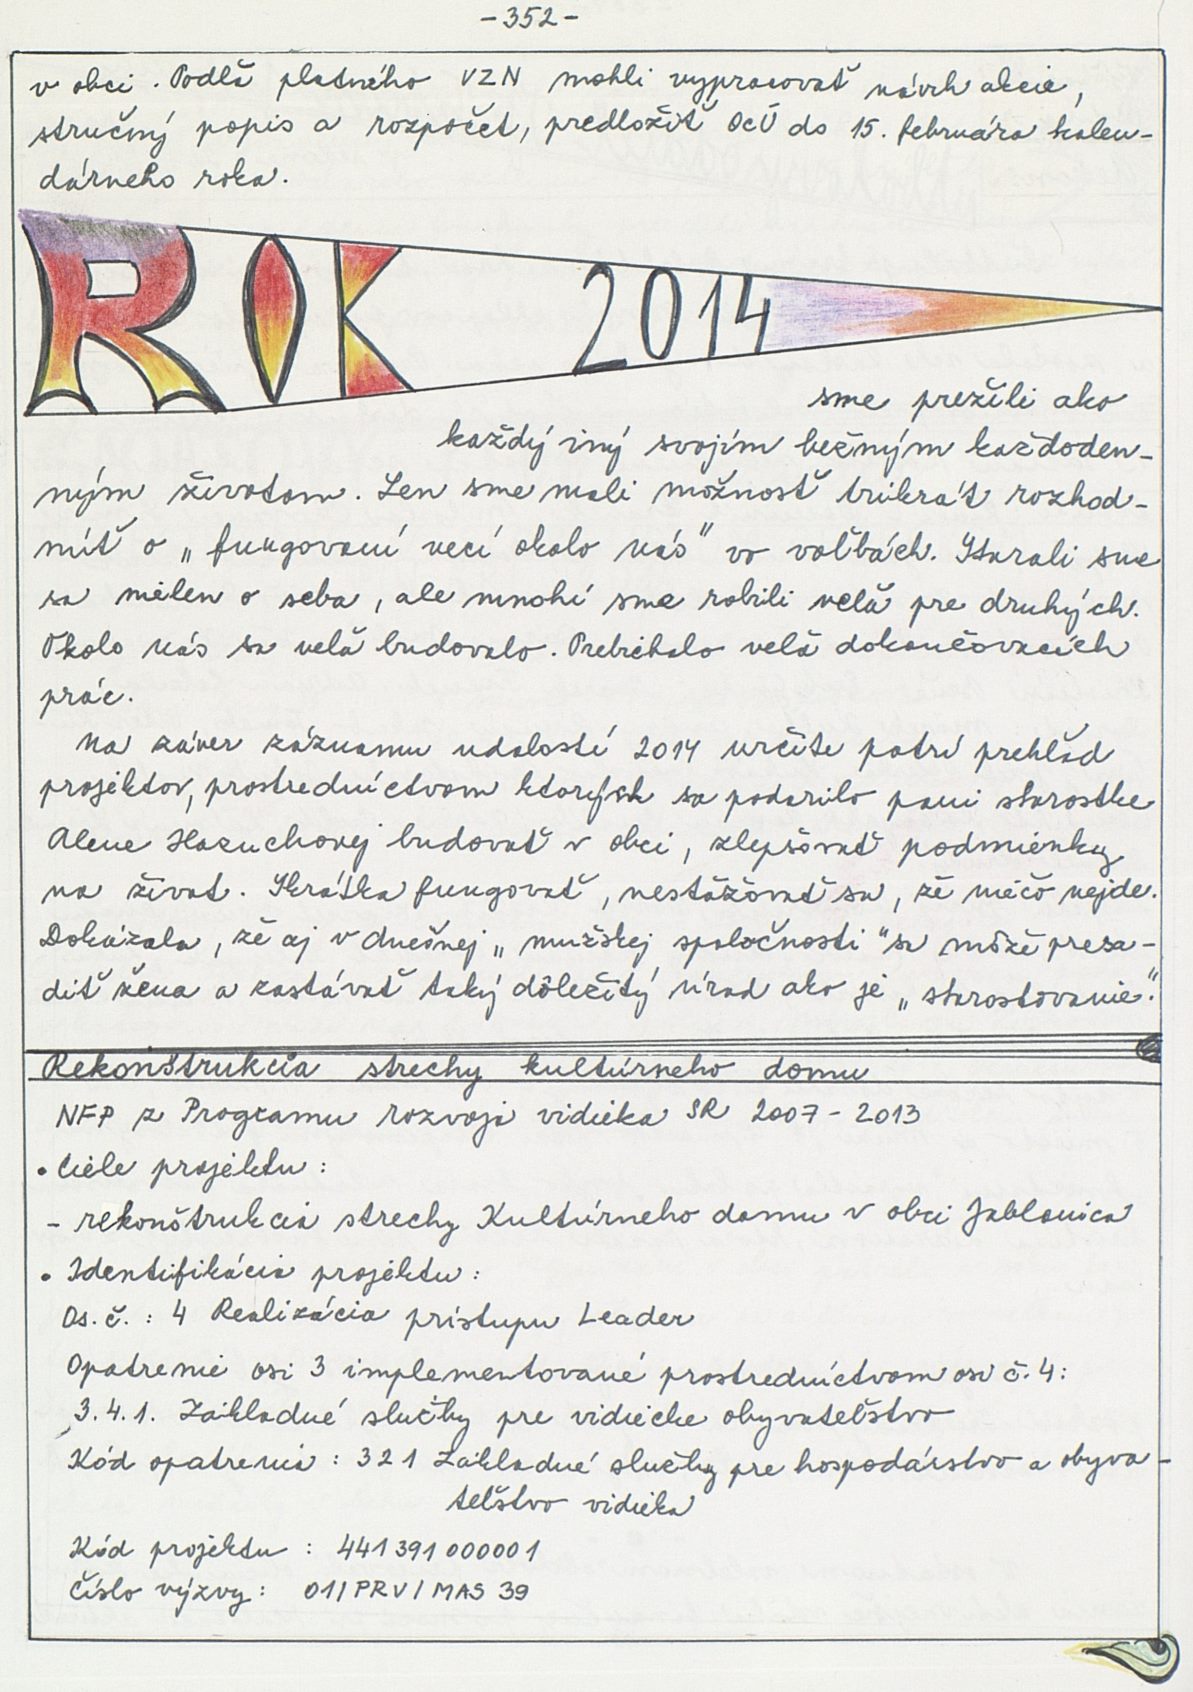 -352-
v obci. Podľa platného VZN mohli vypracovať návrh akcie,
stručný popis a rozpočet, predložiť OcÚ do 15. februára kalen-
dárneho roka.
ROK 2014
sme prežili ako
každý iný svojím bežným každoden-
ným životom. Len sme mali možnosť trikrát rozhod-
núť o „fungovaní vecí okolo nás" vo voľbách. Starali sme
sa nielen o seba, ale mnohí sme robili veľa pre druhých.
Okolo nás sa veľa budovalo. Prebiehalo veľa dokončovacích
prác.
Na záver záznamu udalostí 2014 určite patrí prehľad
projektov, prostredníctvom ktorých sa podarilo pani starostke
Alene Hazuchovej budovať v obci, zlepšovať podmienky
na život. Skrátka fungovať, nesťažovať sa, že niečo nejde.
Dokázala, že aj v dnešnej „mužskej spoločnosti" sa môže presa-
diť žena a zastávať taký dôležitý úrad ako je „starostovanie".
Rekonštrukcia strechy kultúrneho domu
NFP z Programu rozvoja vidieka SR 2007-2013
• Ciele projektu:
- rekonštrukcia strechy Kultúrneho domu v obci Jablonica
• Identifikácia projektu:
Os. č.: 4 Realizácia prístupu Leader
Opatrenie osi 3 implementované prostredníctvom osi č. 4:
3.4.1. Základné služby pre vidiecke obyvateľstvo
Kód opatrenia: 321 Základné služby pre hospodárstvo a obyva-
teľstvo vidieka
Kód projektu: 441391000001
Číslo výzvy: 01/PRV/MAS 39